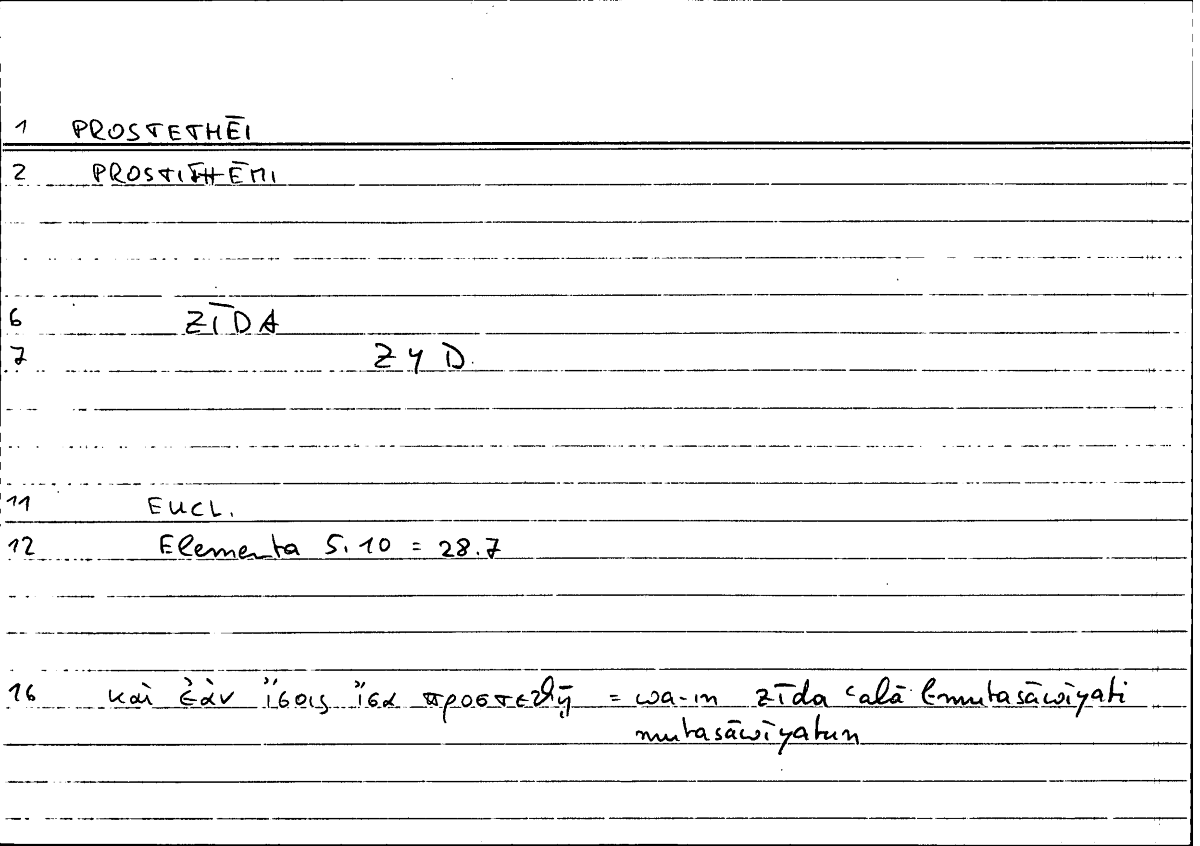 1 PROSTETHĒI
2 PROSTITHĒMI
6 ZĪDA
7 ZYD
11 EUCL.
12 Elementa 5.10 = 28.7
16 καὶ ἐὰν ἴσοις ἴσα προστεθῇ = wa-in zīda ʿalā l-mutasāwiyati
mutasāwiyatun